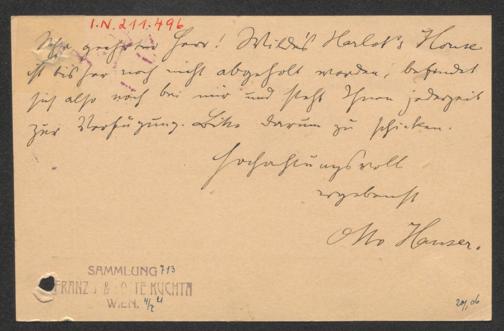 I.N. 211.496
Sehr geehrter Herr! Wilde's Harlot's House
ist bisher noch nicht abgeholt worden, befindet
sich also noch bei mir und steht Ihnen jederzeit
zur Verfügung. Bitte darum zu schicken.
Hochachtungsvoll
ergebenst
Otto Hauser.
SAMMLUNG 713
FRANZ & TE KUCHTA
WIEN.